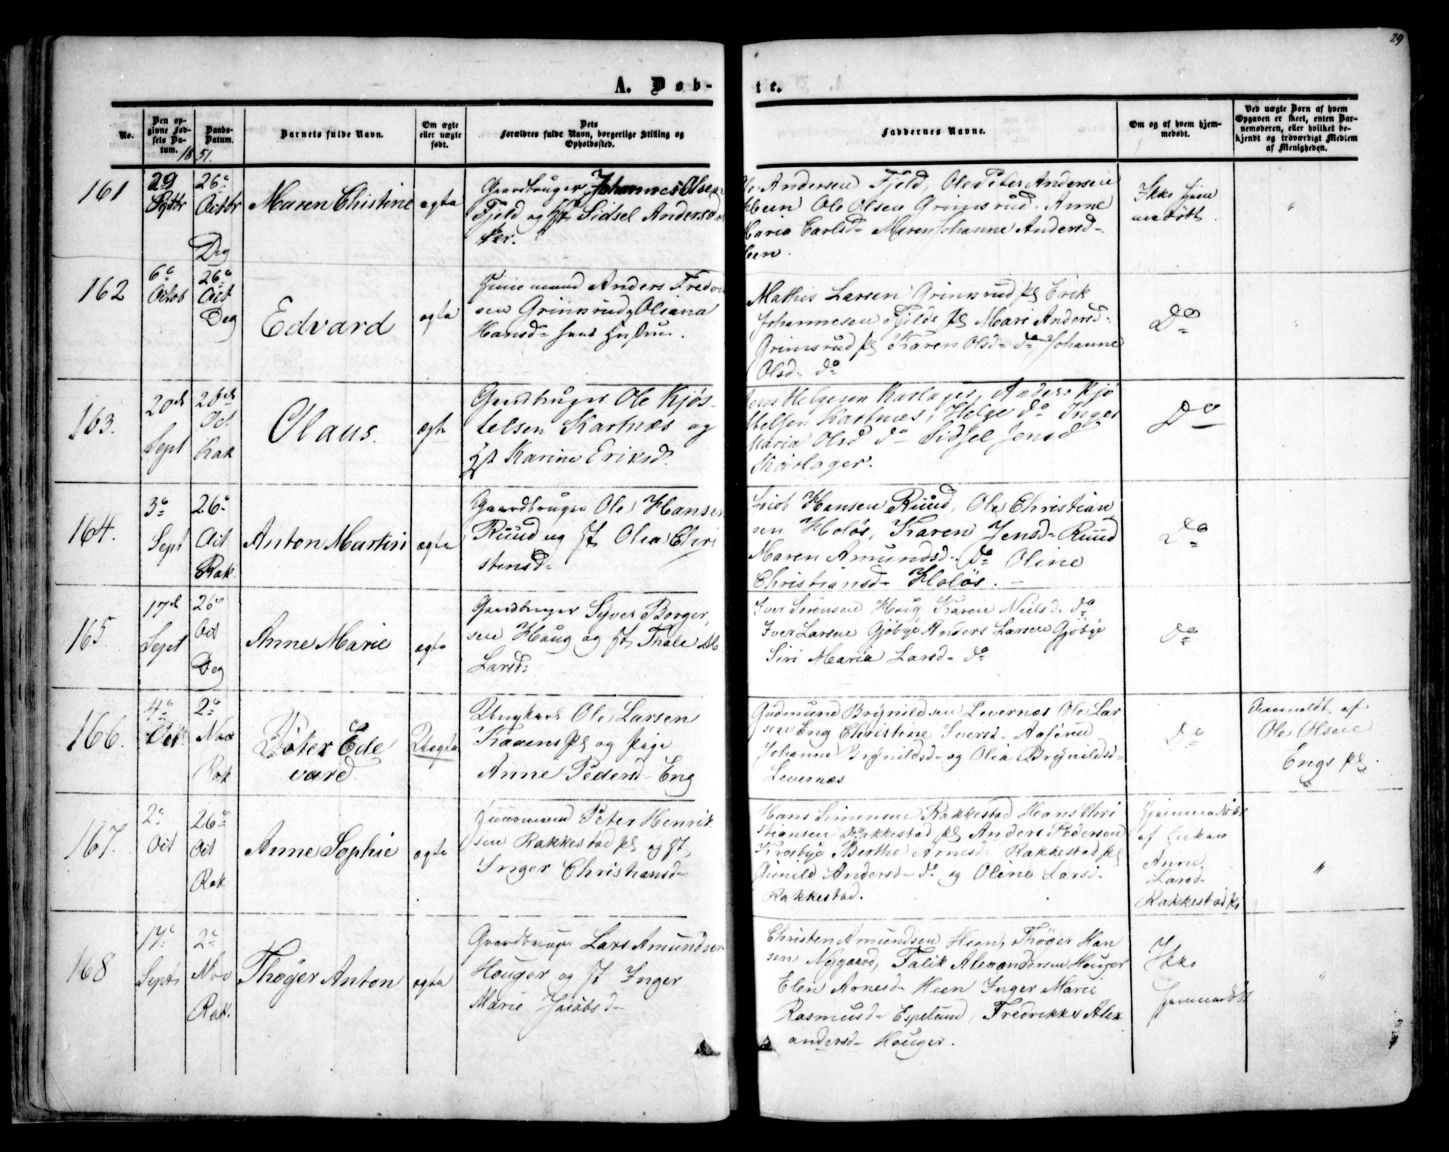 29
A. Døb-
te.
No.
Den op-
givne Fød-
sels Da-
tum.
Daabs-
Datum.
1851.
Barnets fulde Navn.
Om ægte
eller uægte
født.
Dets
Forældres fulde Navn, borgerlige Stilling og
Opholdssted.
Faddernes Navne.
Om og af hvem hjem-
medøbt.
Ved uægte Børn af hvem
Opgaven er skeet, enten Bar-
nemoderen, eller hvilket be-
kjendt og troværdigt Medlem
af Menigheden.
161
29
Septbr
26
Octbr
Deg
Maren Christine
egte
Gaardbruger Johannes Olsen
Fjeld og Sidsel Andersd
Andersen Fjeld, Ole Peter Andersen
Heen Ole Olsen Grimsrud, Anne
Maria Carlsd- Maren Johanne Andersd-
Heen.
Ikke hjem
medøbt
"
162
6
Octob
26
Oct
Deg
Edvard
egte
Huusmand Anders Fredrik
sen Grimsrud, Oliana
Hansd- hans Hustru.
Mathis Larsen Grimsrud pl Erik
Johannesen Fjeld pl Mari Andersd-
Grimsrud pl Karen Olsd- do Johanne
Olsd- do
Do
163.
20de
Sept
Oct
Rak
Olaus.
egte
Gaardbruger Ole Kjøs-
telsen Kartnæs og
Karine Eriksd.
Jens Helgesen Karlager, Anders Kjø
stelsen Kartnæs, Helge do Inger
Maria Olsd do Sidsel Jensd
Karlager.
Do
164.
3
Sept
26
Oct
Rak.
Anton Martin
egte
Gaardbruger Ole Hansen
Ruud og Olea Chri
stensd-
Jacob Hansen Ruud, Ole Christian
sen Holøs, Karen Jensd- Ruud
Maren Amundsd- do Oline
Christiansd- Holøs.
Do
165
17de
Sept
26
Oct
Deg
Anne Marie
egte
Gaardbruger Syver Borger
sen Haug og Thale
Larsd-
Iver Sørensen Haug Karen Nielsd- do
Iver Larsen Gjøbye Anders Larsen Gjøbye
Siri Maria Larsd- do
Do
166.
4
Oct
2
Nov
Rak
Peter Ede
vard
Uegte
Ungkarl Ole Larsen
og Pige
Anne Pedersd- Eng
Gudmund Brynildsen Levernæs Ole Lar
sen Eng Christine Iversd- Aaserud
Johanne Brynildsd- og Olia Brynildsd-
Levernæs
Do
Anmeldt af
Ole Olsen
Engs pl
167.
2
Oct
26
Oct
Rak
Anne Sophie
egte
Huusmand Peter Henrik
sen Rakkestad pl og
Inger Christiansd-
Hans Simensen Rakkestad Hans Chri
stiansen Rakkestad pl Anders Pedersen
Krosbye Berthe Arnesd- Rakkestad pl
Gunild Andersd- do og Oline Larsd-
Rakkestad.
Hjemmedøbt
af Enken
Anne
Larsd-
Rakkestad pl
"
168
17
Sept
2
Nov
Rak.
Thøger Anton
egte
Gaardbruger Lars Amundsen
Houger og Inger
Marie Jacobsd-
Christen Amundsen Heen, Thøger Han
sen Nygaard, Falik Alexandersen Houger
Elen Arnesd- Heen Inger Marie
Rasmusd- Espelund, Fredrikke Alex
andersd- Houger.
Ikke
hjemmedøbt
"